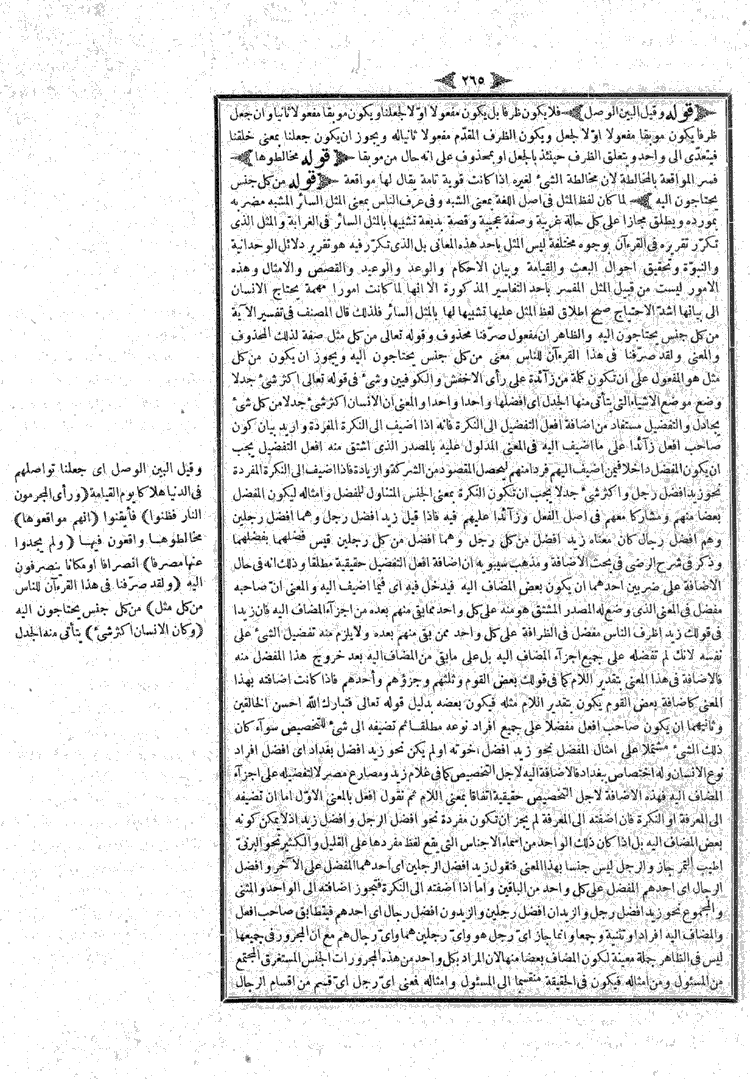 ٢٦٥
قوله وقيل البين الوصل فلا يكون ظرفا بل يكون مفعولا اولا لجعلنا ويكون موبقا مفعولا ثانيا وان جعل
ظرفا يكون موبقا مفعولا اولا لجعل ويكون الظرف المقدّم مفعولا ثانياله ويجوز ان يكون جعلنا بمعنى خلقنا
فيتعدّى الى واحد ويتعلق الظرف حينئذ بالجعل او بمحذوف على انه حال من موبقا قوله مخالطوها
فسر المواقعة بالمخالطة لان مخالطة الشئ لغيره اذا كانت قوية تامة يقال لها مواقعة قوله من كل جنس
يحتاجون اليه لما كان لفظ المثل فى اصل اللغة بمعنى الشبه وفى عرف الناس بمعنى المثل السائر المشبه مضربه
بمورده ويطلق مجازا على كل حالة غريبة وصفة عجيبة وقصة بديعة تشبيها بالمثل السائر فى الغرابة والمثل الذى
تكرّر تقريره فى القرءآن بوجوه مختلفة ليس المثل باحد هذه المعانى بل الذى تكرّر فيه هو تقرير دلائل الوحدانية
والنبوّة وتحقيق احوال البعث والقيامة وبيان الاحكام والوعد والوعيد والقصص والامثال وهذه
الامور ليست من قبيل المثل المفسر باحد التفاسير المذكورة الا انها لما كانت امورا مهمة يحتاج الانسان
الى بيانها اشدّ الاحتياج صح اطلاق لفظ المثل عليها تشبيها لها بالمثل السائر فلذلك قال المصنف فى تفسير الآية
من كل جنس يحتاجون اليه والظاهر ان مفعول صرّفنا محذوف وقوله تعالى من كل مثل صفة لذلك المحذوف
والمعنى ولقد صرّفنا فى هذا القرءآن للناس معنى من كل جنس يحتاجون اليه ويجوز ان يكون من كل
مثل هو المفعول على ان تكون كلمة من زآئدة على رأى الاخفش والكوفيين وشئ فى قوله تعالى اكثر شئ جدلا
وضع موضع الاشياء التى يتأتى منها الجدل اى افضلها واحدا واحدا والمعنى ان الانسان اكثر شئ جدلا من كل شئ
يجادل والتفضيل مستفاد من اضافة افعل التفضيل الى النكرة فانه اذا اضيف الى النكرة المفردة واريد بيان كون
صاحب افعل زآئدا على ما اضيف اليه فى المعنى المدلول عليه بالمصدر الذى اشتق منه افعل التفضيل يجب
ان يكون المفضل داخلا فيمن اضيف اليهم فردا منهم ليحصل المقصود من الشركة والزيادة فاذا اضيف الى النكرة المفردة
نحو زيد افضل رجل واكثر شئ جدلا يجب ان تكون النكرة بمعنى الجنس المتناول للمفضل وامثاله ليكون المفضل
بعضا منهم ومشاركا معهم فى اصل الفعل وزآئدا عليهم فيه فاذا قيل زيد افضل رجل وهما افضل رجلين
وهم افضل رجال كان معناه زيد افضل من كل رجل وهما افضل من كل رجلين قيس فضلهما بفضلهما
وذكر فى شرح الرضى فى بحث الاضافة ومذهب سيبويه ان اضافة افعل التفضيل حقيقية مطلقا وذلك انه فى حال
الاضافة على ضربين احدهما ان يكون بعض المضاف اليه فيدخل فيه اى فيما اضيف اليه والمعنى انّ صاحبه
مفضل فى المعنى الذى وضع له المصدر المشتق هو منه على كل واحد مما بقى منهم بعده من اجزآء المضاف اليه فان زيدا
فى قولك زيد اظرف الناس مفضل فى الظرافة على كل واحد ممن بقى منهم بعده ولا يلزم منه تفضيل الشئ على
نفسه لانك لم تفضله على جميع اجزآء المضاف اليه بل على مابقى من المضاف اليه بعد خروج هذا المفضل منه
فالاضافة فى هذا المعنى بتقدير اللام كما فى قولك بعض القوم وثلثهم وجزؤهم واحدهم فاذا كانت اضافته بهذا
المعنى كاضافة بعض القوم يكون بتقدير اللام مثله فيكون بعضه بدليل قوله تعالى فتبارك الله احسن الخالقين
وثانيهما ان يكون صاحب افعل مفضلا على جميع افراد نوعه مطلقا ثم تضيفه الى شئ للتخصيص سوآء كان
ذلك الشئ مشتملا على امثال المفضل نحو زيد افضل اخوته او لم يكن نحو زيد افضل بغداد اى افضل افراد
نوع الانسان وله اختصاص ببغداد فالاضافة اليه لاجل التخصيص كما فى غلام زيد ومصارع مصر لا لتفضيله على اجزآء
المضاف اليه فهذه الاضافة لاجل التخصيص حقيقية اتفاقا بمعنى اللام ثم نقول افعل بالمعنى الاوّل اما ان تضيفه
الى المعرفة او النكرة فان اضفته الى المعرفة لم يجز ان تكون مفردة نحو افضل الرجل وافضل زيد اذ لا يمكن كونه
بعض المضاف اليه بل اذا كان ذلك الواحد من اسماء الاجناس التى يقع لفظ مفردها على القليل والكثير نحو البرنىّ
اطيب التمر جاز والرجل ليس جنسا بهذا المعنى فتقول زيد افضل الرجلين اى احدهما المفضل على الآخر وافضل
الرجال اى احدهم المفضل على كل واحد من الباقين واما اذا اضفته الى النكرة فتجوز اضافته الى الواحد والمثنى
والمجموع نحو زيد افضل رجل والزيدان افضل رجلين والزيدون افضل رجال اى احدهم فيطابق صاحب افعل
والمضاف اليه افرادا وتثنية وجمعا وانما جاز اىّ رجل هو واىّ رجلين هما واىّ رجال هم مع ان المجرور فى جميعها
ليس فى الظاهر جملة معينة لكون المضاف بعضا منها لان المراد بكل واحد من هذه المجرورات الجنس المستغرق المجتمع
من المسئول ومن امثاله فيكون فى الحقيقة منقسما الى المسئول وامثاله فمعنى اىّ رجل اىّ قسم من اقسام الرجال
وقيل البين الوصل اى جعلنا تواصلهم
فى الدنيا هلاكا يوم القيامة (ورأى المجرمون
النار فظنوا) فأيقنوا (انهم مواقعوها)
مخالطوها واقعون فيها (ولم يجدوا
عنها مصرفا) انصرافا او مكانا ينصرفون
اليه (ولقد صرّفنا فى هذا القرءآن للناس
من كل مثل) من كل جنس يحتاجون اليه
(وكان الانسان اكثر شئ) يتأتى منه الجدل